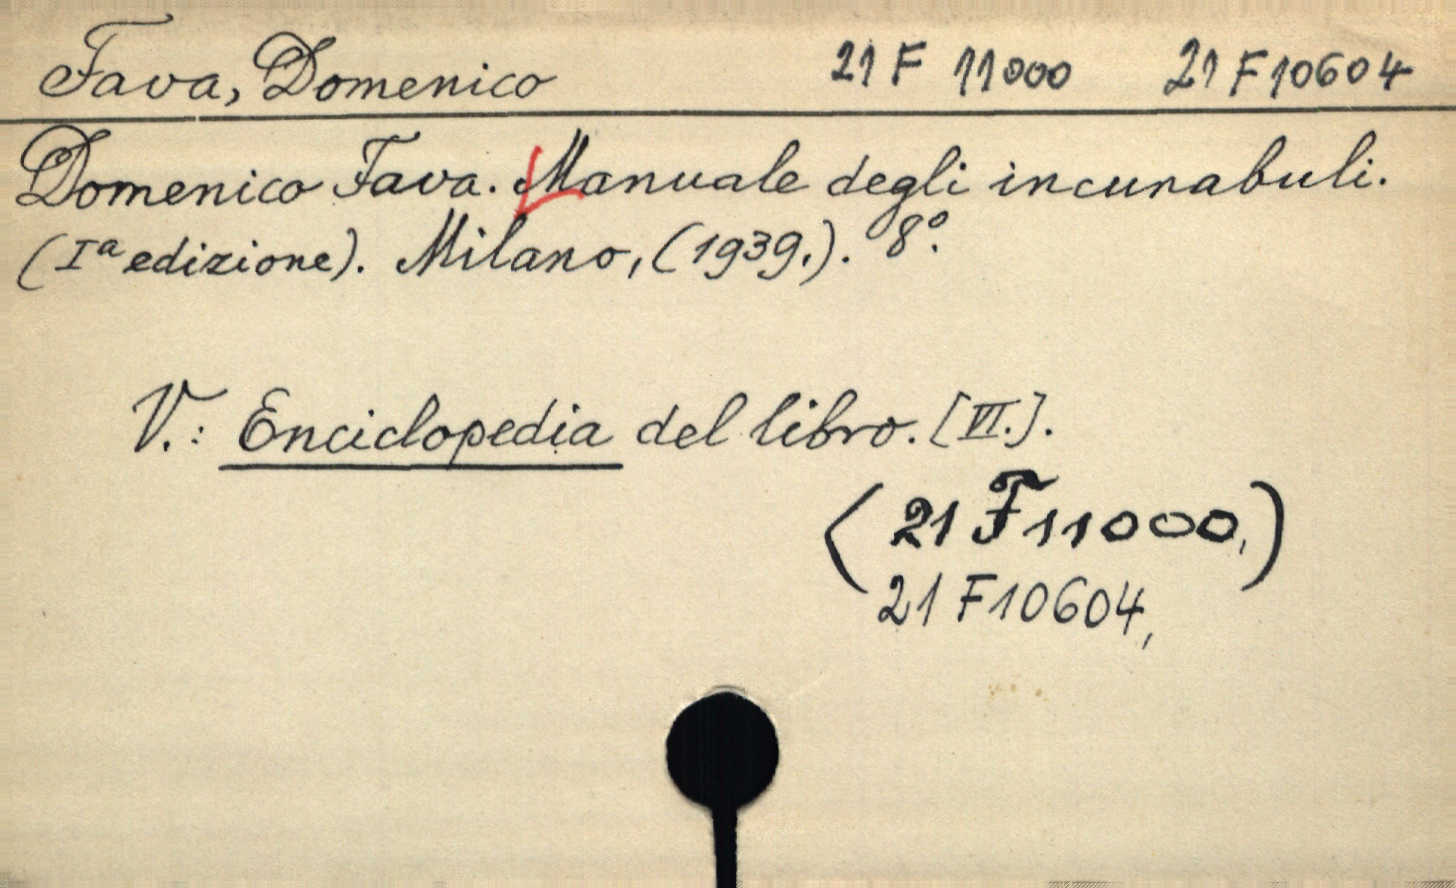 Fava, Domenico 21 F 11000 21 F 10604
Domenico Fava. Manuale degli incunabuli.
(Iª edizione). Milano, (1939.). 8º.
V.: Enciclopedia del libro. [VI.].
(21 F 11000,)
21 F 10604,